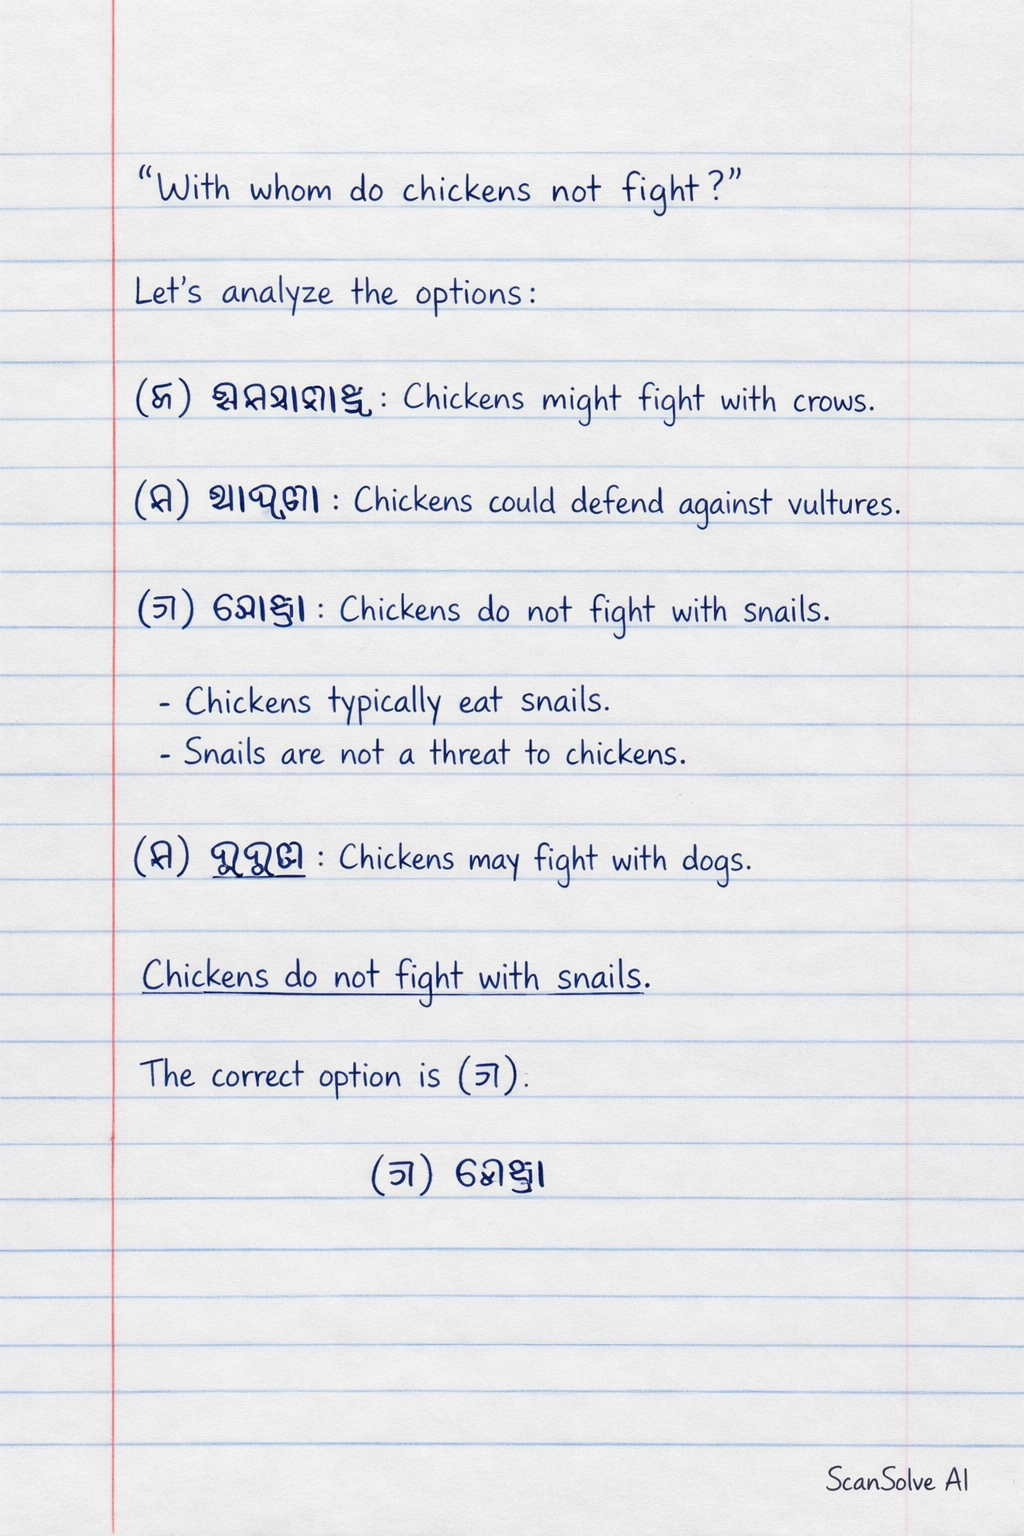 “With whom do chickens not fight?”
Let's analyze the options:
: Chickens might fight with crows.
: Chickens could defend against vultures.
: Chickens do not fight with snails.
- Chickens typically eat snails.
- Snails are not a threat to chickens.
: Chickens may fight with dogs.
Chickens do not fight with snails.
The correct option is
ScanSolve AI